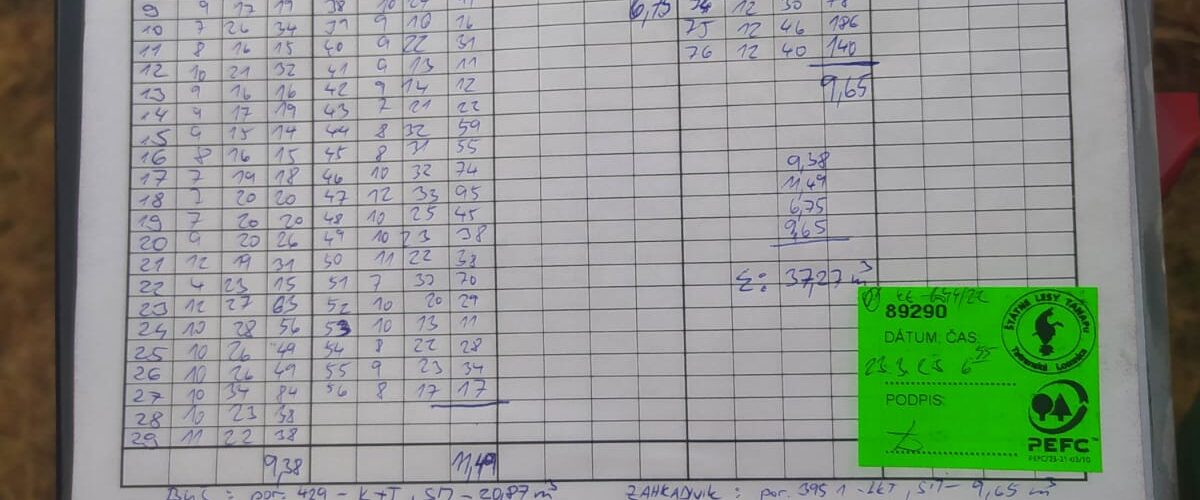 9 9 17 19 38 10 6,75 74 12 30 78
10 7 26 34 39 9 10 16 75 12 46 186
11 8 16 15 40 9 22 31 76 12 40 140
12 10 21 32 41 9 13 11
13 9 16 16 42 9 14 12 9,65
14 9 17 19 43 7 21 22
15 9 15 14 44 8 32 59
16 8 16 15 45 8 31 55
17 7 19 18 46 10 32 74 9,38
18 7 20 20 47 12 33 95 11,49
19 7 20 20 48 10 25 45 6,75
20 9 20 26 49 10 23 38 9,65
21 12 19 31 50 11 22 38
22 4 23 15 51 7 70 Σ: 37,27 m³
23 12 27 63 52 10 20 29
24 10 28 56 53 10 13 11
25 10 26 49 54 8 22 28
26 10 26 49 55 9 23 34
27 10 34 84 56 8 17 17
28 10 23 38
29 11 22 38
9,38 11,49
por. 429 - 20,87 m³
por. 395 1 - LKT, SM - 9,65 m³
89290
DÁTUM, ČAS:
PODPIS:
ŠTÁTNE LESY TANAPU
Tatranská Lomnica
PEFC™
PEFC/23-21-03/10